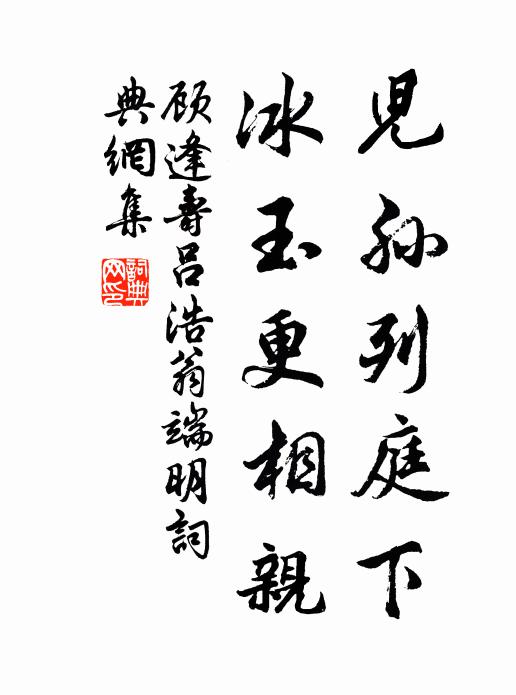 児孫列庭下
冰玉更相親
顾逢壽吕浩翁端明詞
典網集
詞典網印